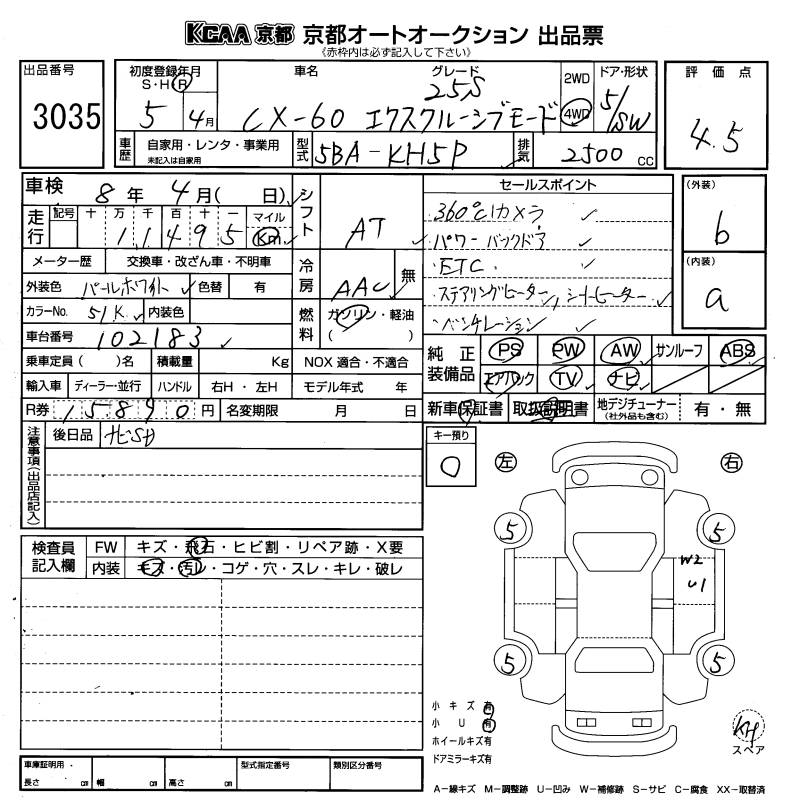 KCAA 京都 京都オートオークション 出品票
《赤枠内は必ず記入して下さい》
出品番号 初度登録年月 車名 グレード 2WD ドア・形状 評価点
S・H・R 25S 4WD
3035 5 4月 CX-60 エクスクルーシブモード 5/SW 4.5
車歴 自家用・レンタ・事業用 型式 5BA-KH5P 排気 2500 cc
未記入は自家用
車検 8年 4月( 日) シフト AT セールスポイント (外装)
走行 記号 十 万 千 百 十 一 マイル 360°カメラ b
1 1 4 9 5 Km パワーバックドア
メーター歴 交換車・改ざん車・不明車 冷房 AAC 無 ETC (内装)
外装色 パールホワイト 色替 有 ステアリングヒーター, シートヒーター a
カラーNo. 51K 内装色 燃料 ガソリン・軽油 ベンチレーション
車台番号 102183 ( )
乗車定員( )名 積載量 Kg NOX 適合・不適合 純正装備品 PS PW AW サンルーフ ABS
輸入車 ディーラー・並行 ハンドル 右H・左H モデル年式 年 エアバック TV ナビ
R券 15890円 名変期限 月 日 新車保証書 取扱説明書 地デジチューナー 有・無
(社外品も含む)
注意事項(出品店記入) 後日品 ナビSD キー預り 左 右
検査員記入欄 FW キズ・飛石・ヒビ割・リペア跡・X要
内装 キズ・汚レ・コゲ・穴・スレ・キレ・破レ
5 5
W2
U1
5 5
小キズ有
小U有
ホイールキズ有
ドアミラーキズ有
スペア
車庫証明用・ 型式指定番号 類別区分番号
長さ cm 幅 cm 高さ cm
A−線キズ M−調整跡 U−凹み W−補修跡 S−サビ C−腐食 XX−取替済